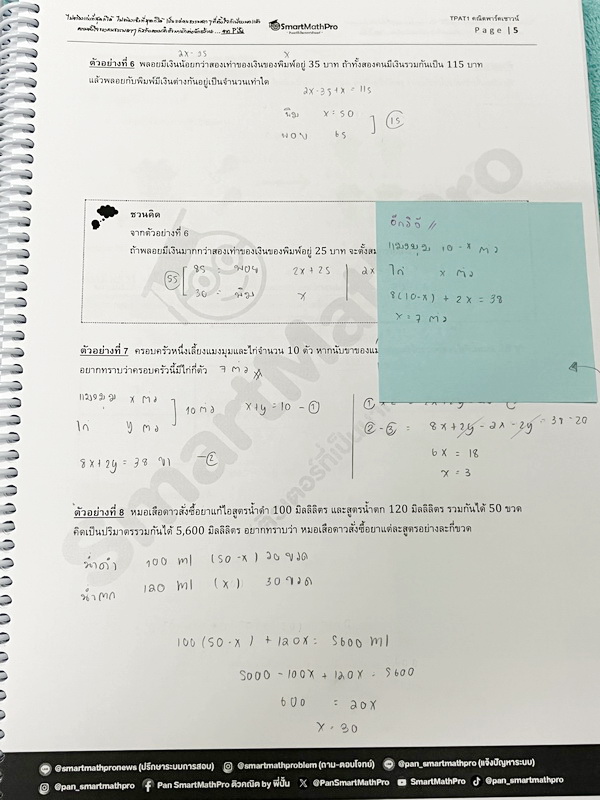 SmartMathPro
TPAT1 คณิตพาร์ตเชาวน์
Page | 5
2x-35 x
ตัวอย่างที่ 6 พลอยมีเงินน้อยกว่าสองเท่าของเงินของพิมพ์อยู่ 35 บาท ถ้าทั้งสองคนมีเงินรวมกันเป็น 115 บาท
แล้วพลอยกับพิมพ์มีเงินต่างกันอยู่เป็นจำนวนเท่าใด
2x-35+x = 115
พิม x = 50
พลอย 65
15
ชวนคิด
จากตัวอย่างที่ 6
ถ้าพลอยมีเงินมากกว่าสองเท่าของเงินของพิมพ์อยู่ 25 บาท จะตั้งสม
55 85 = พลอย 2x+25 2x
30 = พิม x
อีกวิธี
แมงมุม 10-x ตัว
ไก่ x ตัว
8(10-x) + 2x = 38
x = 7 ตัว
ตัวอย่างที่ 7 ครอบครัวหนึ่งเลี้ยงแมงมุมและไก่จำนวน 10 ตัว หากนับขาของแม
อยากทราบว่าครอบครัวนี้มีไก่กี่ตัว 7 ตัว
แมงมุม x ตัว
ไก่ y ตัว
10 ตัว x+y = 10 - ①
8x+2y = 38 ขา - ②
② - ③ = 8x+2y-2x-2y = 38-20
6x = 18
x = 3
ตัวอย่างที่ 8 หมอเสือดาวสั่งซื้อยาแก้ไอสูตรน้ำดำ 100 มิลลิลิตร และสูตรน้ำตก 120 มิลลิลิตร รวมกันได้ 50 ขวด
คิดเป็นปริมาตรรวมกันได้ 5,600 มิลลิลิตร อยากทราบว่า หมอเสือดาวสั่งซื้อยาแต่ละสูตรอย่างละกี่ขวด
น้ำดำ 100 ml (50-x) 20 ขวด
น้ำตก 120 ml (x) 30 ขวด
100(50-x) + 120x = 5600 ml
5000 - 100x + 120x = 5600
600 = 20x
x = 30
@smartmathpronews (ปรึกษาระบบการสอบ) @smartmathproblem (ถาม-ตอบโจทย์) @pan_smartmathpro (แจ้งปัญหาระบบ)
@pan_smartmathpro Pan SmartMathPro ติวคณิต by พี่ปั้น @PanSmartMathPro SmartMathPro @pan_smartmathpro